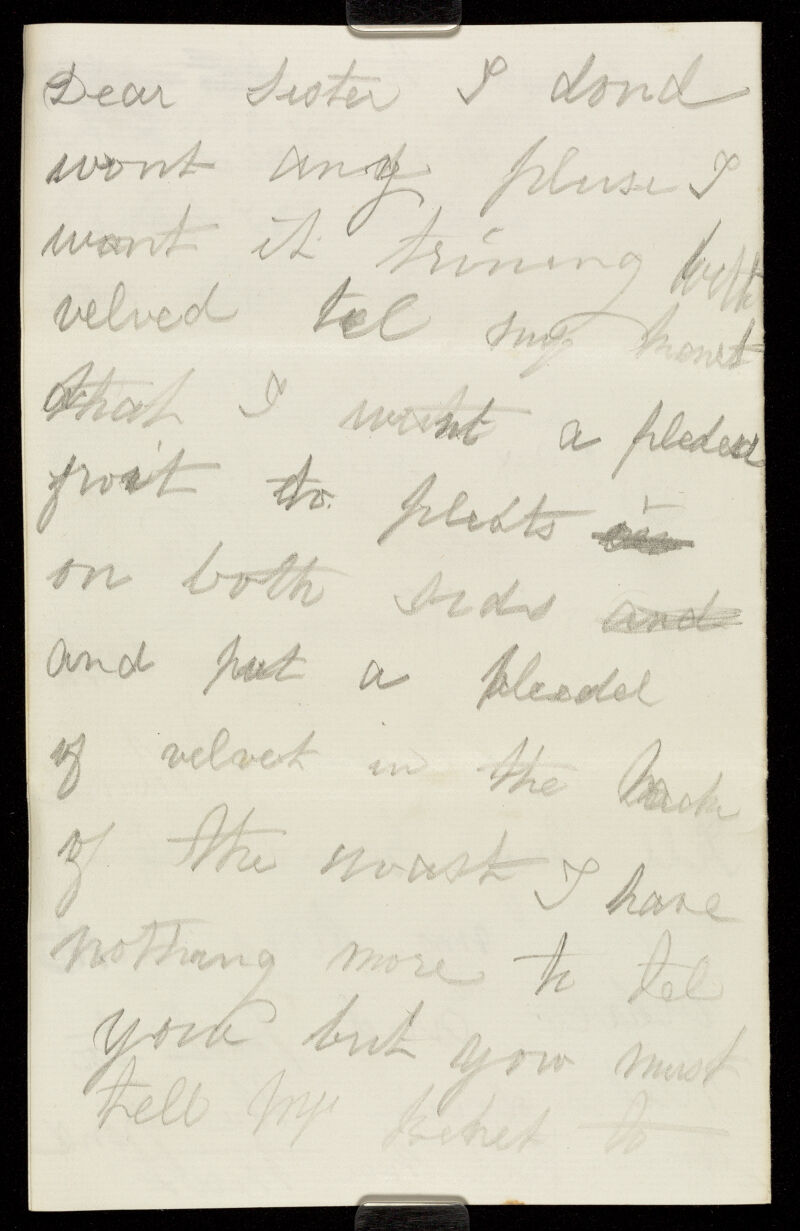 Dear Sister I dond
wont any pluse I
want it trining with
velved tel my
that I want a pleded
froit to pleats
on both sids and
and put a pleedel
of velvet in the back
of the wast I have
nothang more to tel
you but you must
tell my to